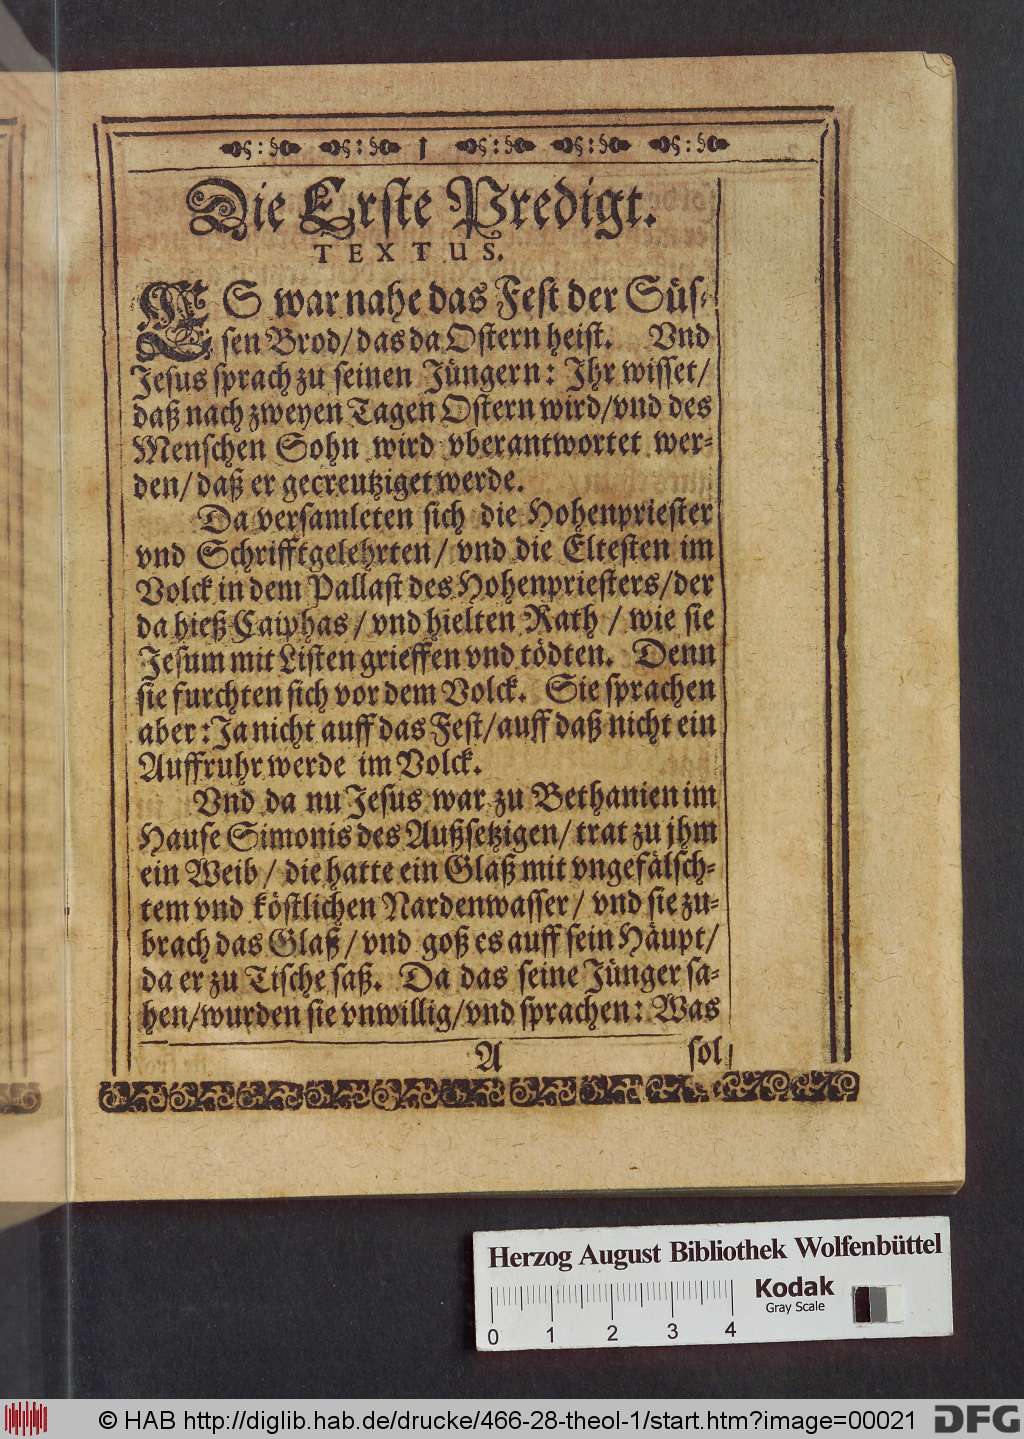 1
Die Erste Predigt.
TEXTUS.
ES war nahe das Fest der Süs-
sen Brod/ das da Ostern heist. Vnd
Jesus sprach zu seinen Jüngern: Ihr wisset/
daß nach zweyen Tagen Ostern wird/ vnd des
Menschen Sohn wird vberantwortet wer-
den/ daß er gecreutziget werde.
Da versamleten sich die Hohenpriester
vnd Schrifftgelehrten/ vnd die Eltesten im
Volck in dem Pallast des Hohenpriesters/ der
da hieß Caiphas/ vnd hielten Rath/ wie sie
Jesum mit Listen grieffen vnd tödten. Denn
sie furchten sich vor dem Volck. Sie sprachen
aber: Ja nicht auff das Fest/ auff daß nicht ein
Auffruhr werde im Volck.
Vnd da nu Jesus war zu Bethanien im
Hause Simonis des Außsetzigen/ trat zu jhm
ein Weib/ die hatte ein Glaß mit vngefälsch-
tem vnd köstlichen Nardenwasser/ vnd sie zu-
brach das Glaß/ vnd goß es auff sein Häupt/
da er zu Tische saß. Da das seine Jünger sa-
hen/ wurden sie vnwillig/ vnd sprachen: Was
A sol
Herzog August Bibliothek Wolfenbüttel
Kodak
Gray Scale
0 1 2 3 4
© HAB http://diglib.hab.de/drucke/466-28-theol-1/start.htm?image=00021
DFG